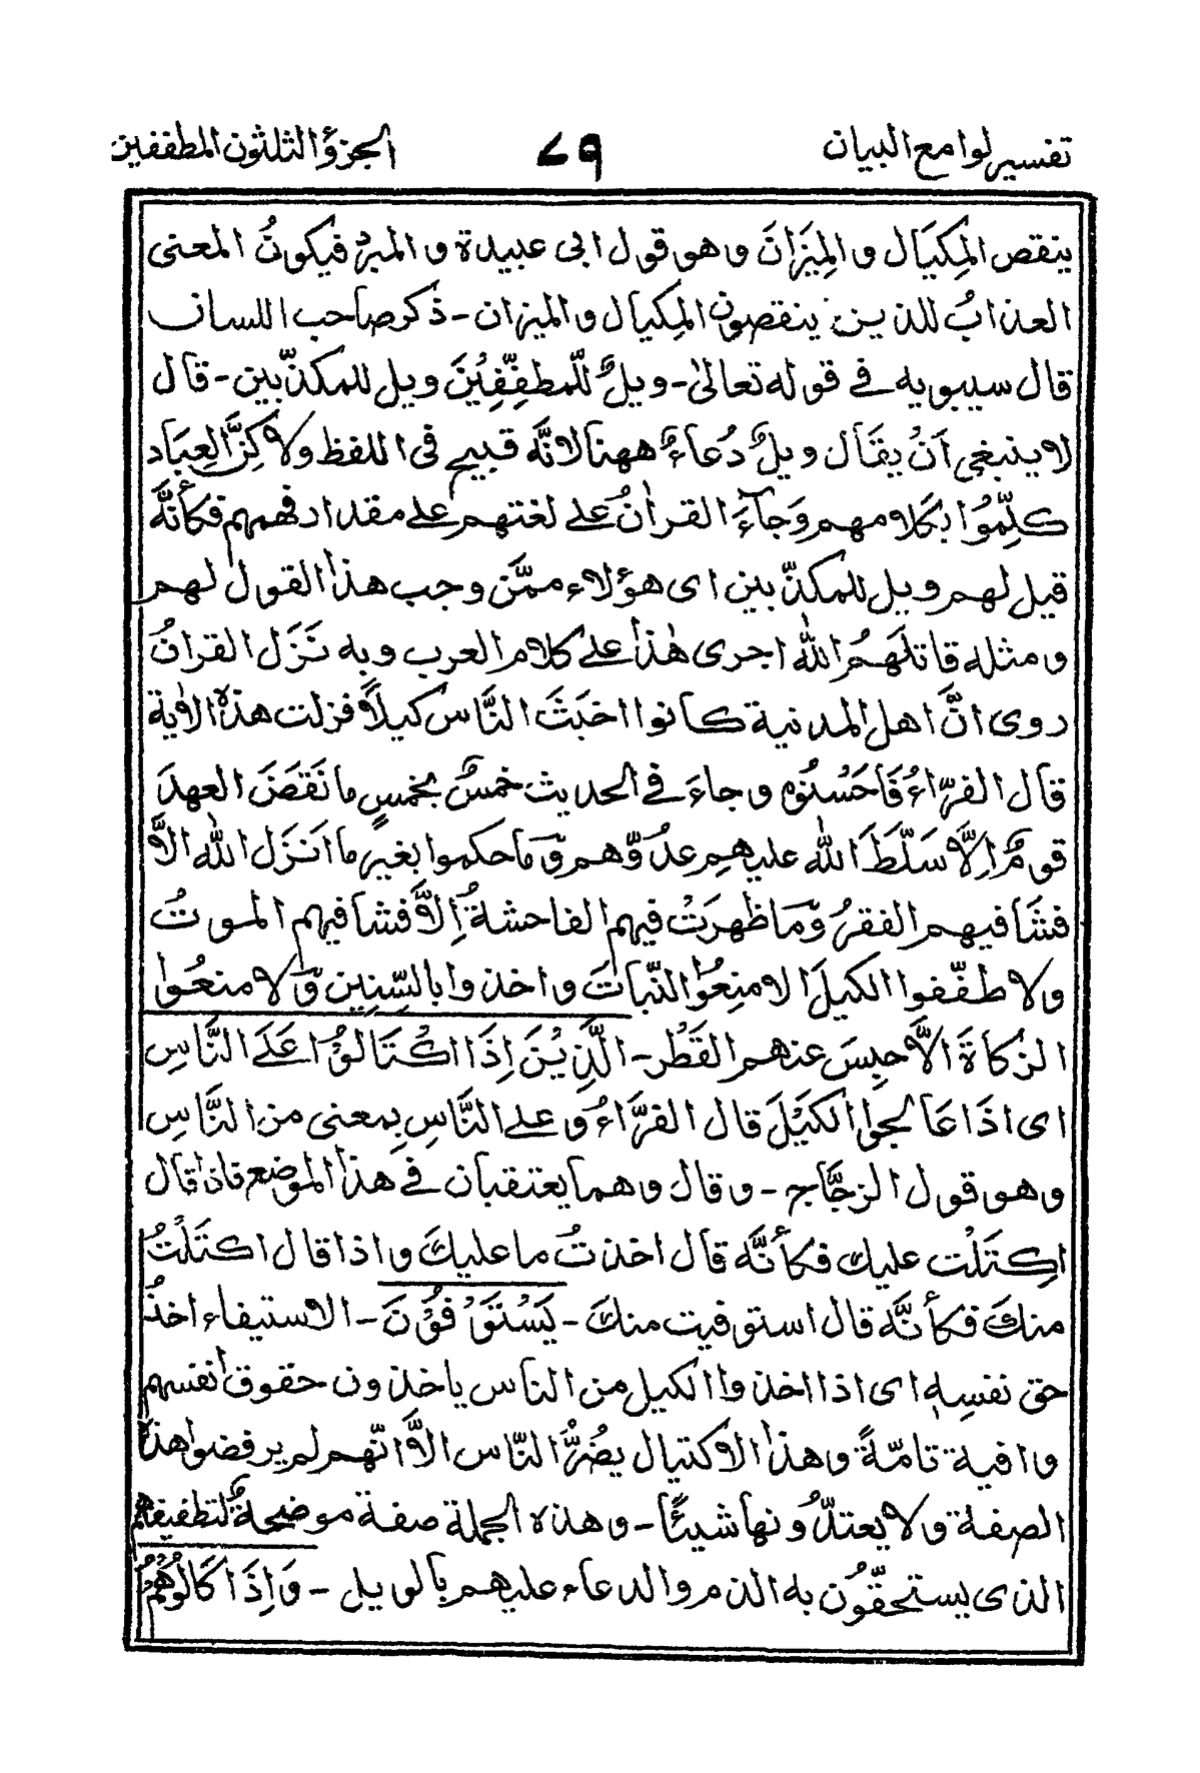 تفسير لوامع البيان
٧٩
الجزؤ الثلثون المطففين
ينقص المِكيَال والمِيَزانَ وهو قول ابى عبيدة والمبرد فيكونُ المعنى
العذابُ للذين ينقصون المِكيال والميزان - ذكر صاحب اللسان
قال سيبويه فى قوله تعالىٰ - ويلٌ للّمطفِّفِيْنَ ويل للمكذّبين - قال
لا ينبغى اَنْ يقَال ويلٌ دُعاءٌ ههنا لانَّه قبيح فى اللفظ ولاكِنَّ العِبَاد
كلِّمُوا بكلامهم وَجآءَ القراٰنُ على لغتهم على مقدار فهمهم فكأنَّه
قيل لهم ويل للمكذّبين اى هؤلاء ممَّن وجب هذا القول لهم
ومثله قاتلَهمُ اللّٰه اجرى هٰذا على كلام العرب وبه نَزَل القرانُ
روى انَّ اهل المدنية كانوا اخبَثَ النَّاس كيلاً فنزلت هذه الاٰية
قال الفرّاءُ فَاحَسْنُوْه وجاءَ فى الحديث خمسٌ بخمسٍ ما نَقَضَ العهدَ
قومٌ اِلَّا سَلَّطَ اللّٰه عليهِم عدُوّهم وَّما حكموا بغير ما اَنَزَل اللّٰه الاَّ
فشَا فيهم الفقرُ وَّمَا ظهرَتْ فيهم الفاحشةُ اِلاَّ فشا فيهم المـوتُ
ولا طفّفوا الكيلَ الا مُنِعُوْا النّبَاتَ واخذوا بالسِّنِين وَّلا منعُوا
الزكاةَ الاَّ حبِسَ عنهم القَطْر - الَّذِيْنَ اِذَا اكْتَالُوْا عَلَى النَّاسِ
اى اذَا عَالجوا الكَيْلَ قال الفرَّاءُ وَ على النَّاسِ بمعنى من النَّاسِ
وهو قول الزجَّاج - وقال وهما يعتقبان فى هذا الموضع فاذا قال
اِكتَلْت عليك فكأنَّه قال اخذتُ ما عليكَ واذا قال اكتَلْتُ
منكَ فكأنَّه قال استوفيت منكَ - يَسْتَوْفُوْنَ - الاستيفاء اخذُ
حق نفسِه اى اذا اخذوا الكيل من الناس ياخذون حقوق انفسهم
وافية تامّةً وهذا الاكتيال يضُرُّ النّاس الاَّ انّهم لم يرفضوا هذه
الصفلة ولا يعتدُّونها شيئًا - وهذه الجملة صفة موضحةٌ لتطفيفهم
الذى يستحقّون به الذم والدعاء عليهم بالويل - وَاِذَا كَالُوْهُمْ